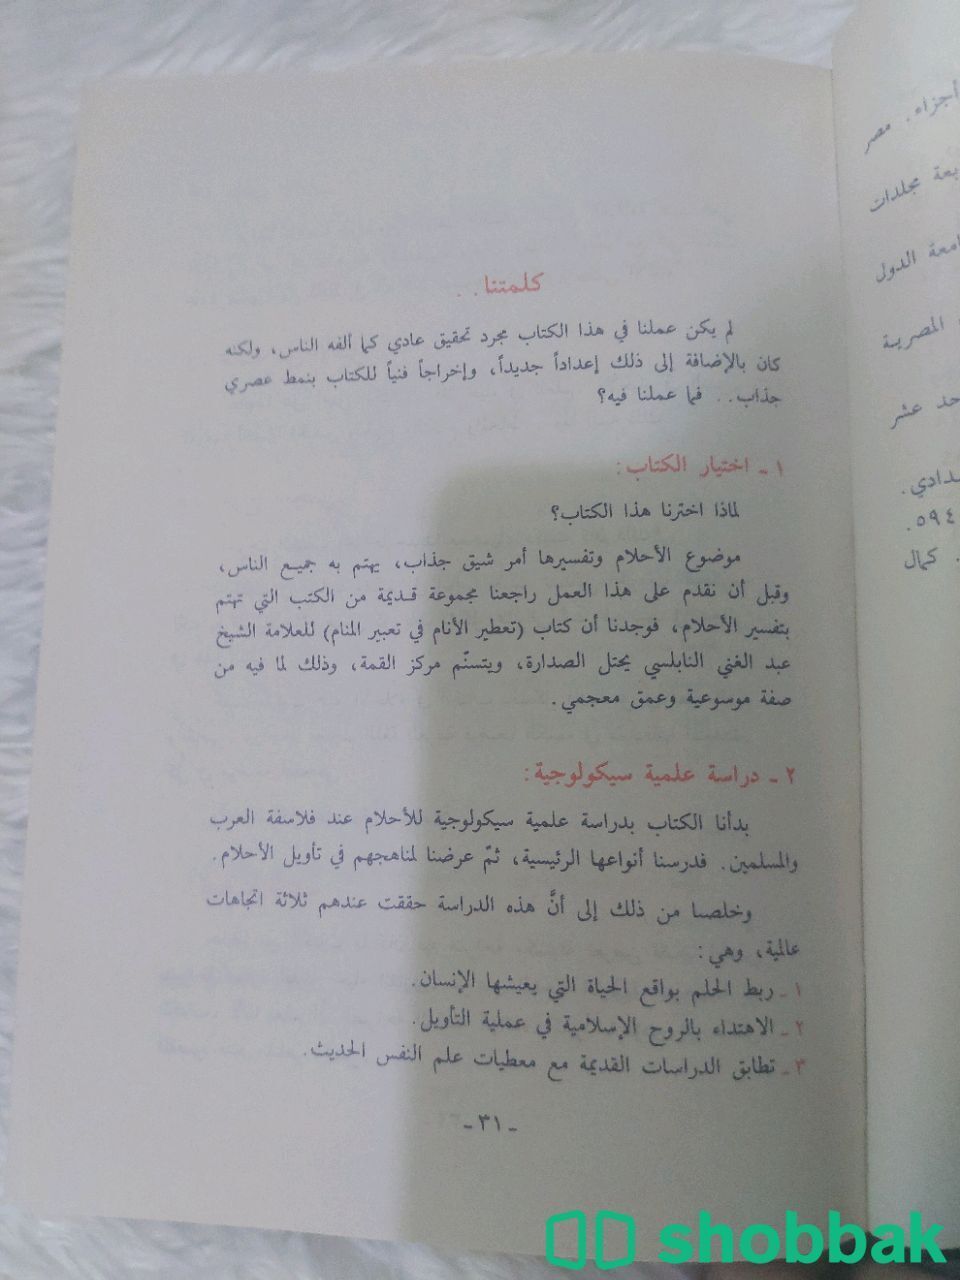 كلمتنا . .
لم يكن عملنا في هذا الكتاب مجرد تحقيق عادي كما ألفه الناس، ولكنه
كان بالإضافة إلى ذلك إعداداً جديداً، وإخراجاً فنياً للكتاب بنمط عصري
جذاب . . فما عملنا فيه؟
١ - اختيار الكتاب :
لماذا اخترنا هذا الكتاب؟
موضوع الأحلام وتفسيرها أمر شيق جذاب، يهتم به جميع الناس،
وقبل أن نقدم على هذا العمل راجعنا مجموعة قديمة من الكتب التي تهتم
بتفسير الأحلام، فوجدنا أن كتاب (تعطير الأنام في تعبير المنام) للعلامة الشيخ
عبد الغني النابلسي يحتل الصدارة، ويتسنّم مركز القمة، وذلك لما فيه من
صفة موسوعية وعمق معجمي .
٢ - دراسة علمية سيكولوجية :
بدأنا الكتاب بدراسة علمية سيكولوجية للأحلام عند فلاسفة العرب
والمسلمين . فدرسنا أنواعها الرئيسية، ثمّ عرضنا لمناهجهم في تأويل الأحلام .
وخلصنا من ذلك إلى أنَّ هذه الدراسة حققت عندهم ثلاثة اتجاهات
عالمية، وهي :
١ - ربط الحلم بواقع الحياة التي يعيشها الإنسان .
٢ - الاهتداء بالروح الإسلامية في عملية التأويل .
٣ - تطابق الدراسات القديمة مع معطيات علم النفس الحديث .
- ٣١ -
أجزاء . مصر
مجلدات
الدول
المصرية
عشر
٥٩٤ .
. كمال
shobbak